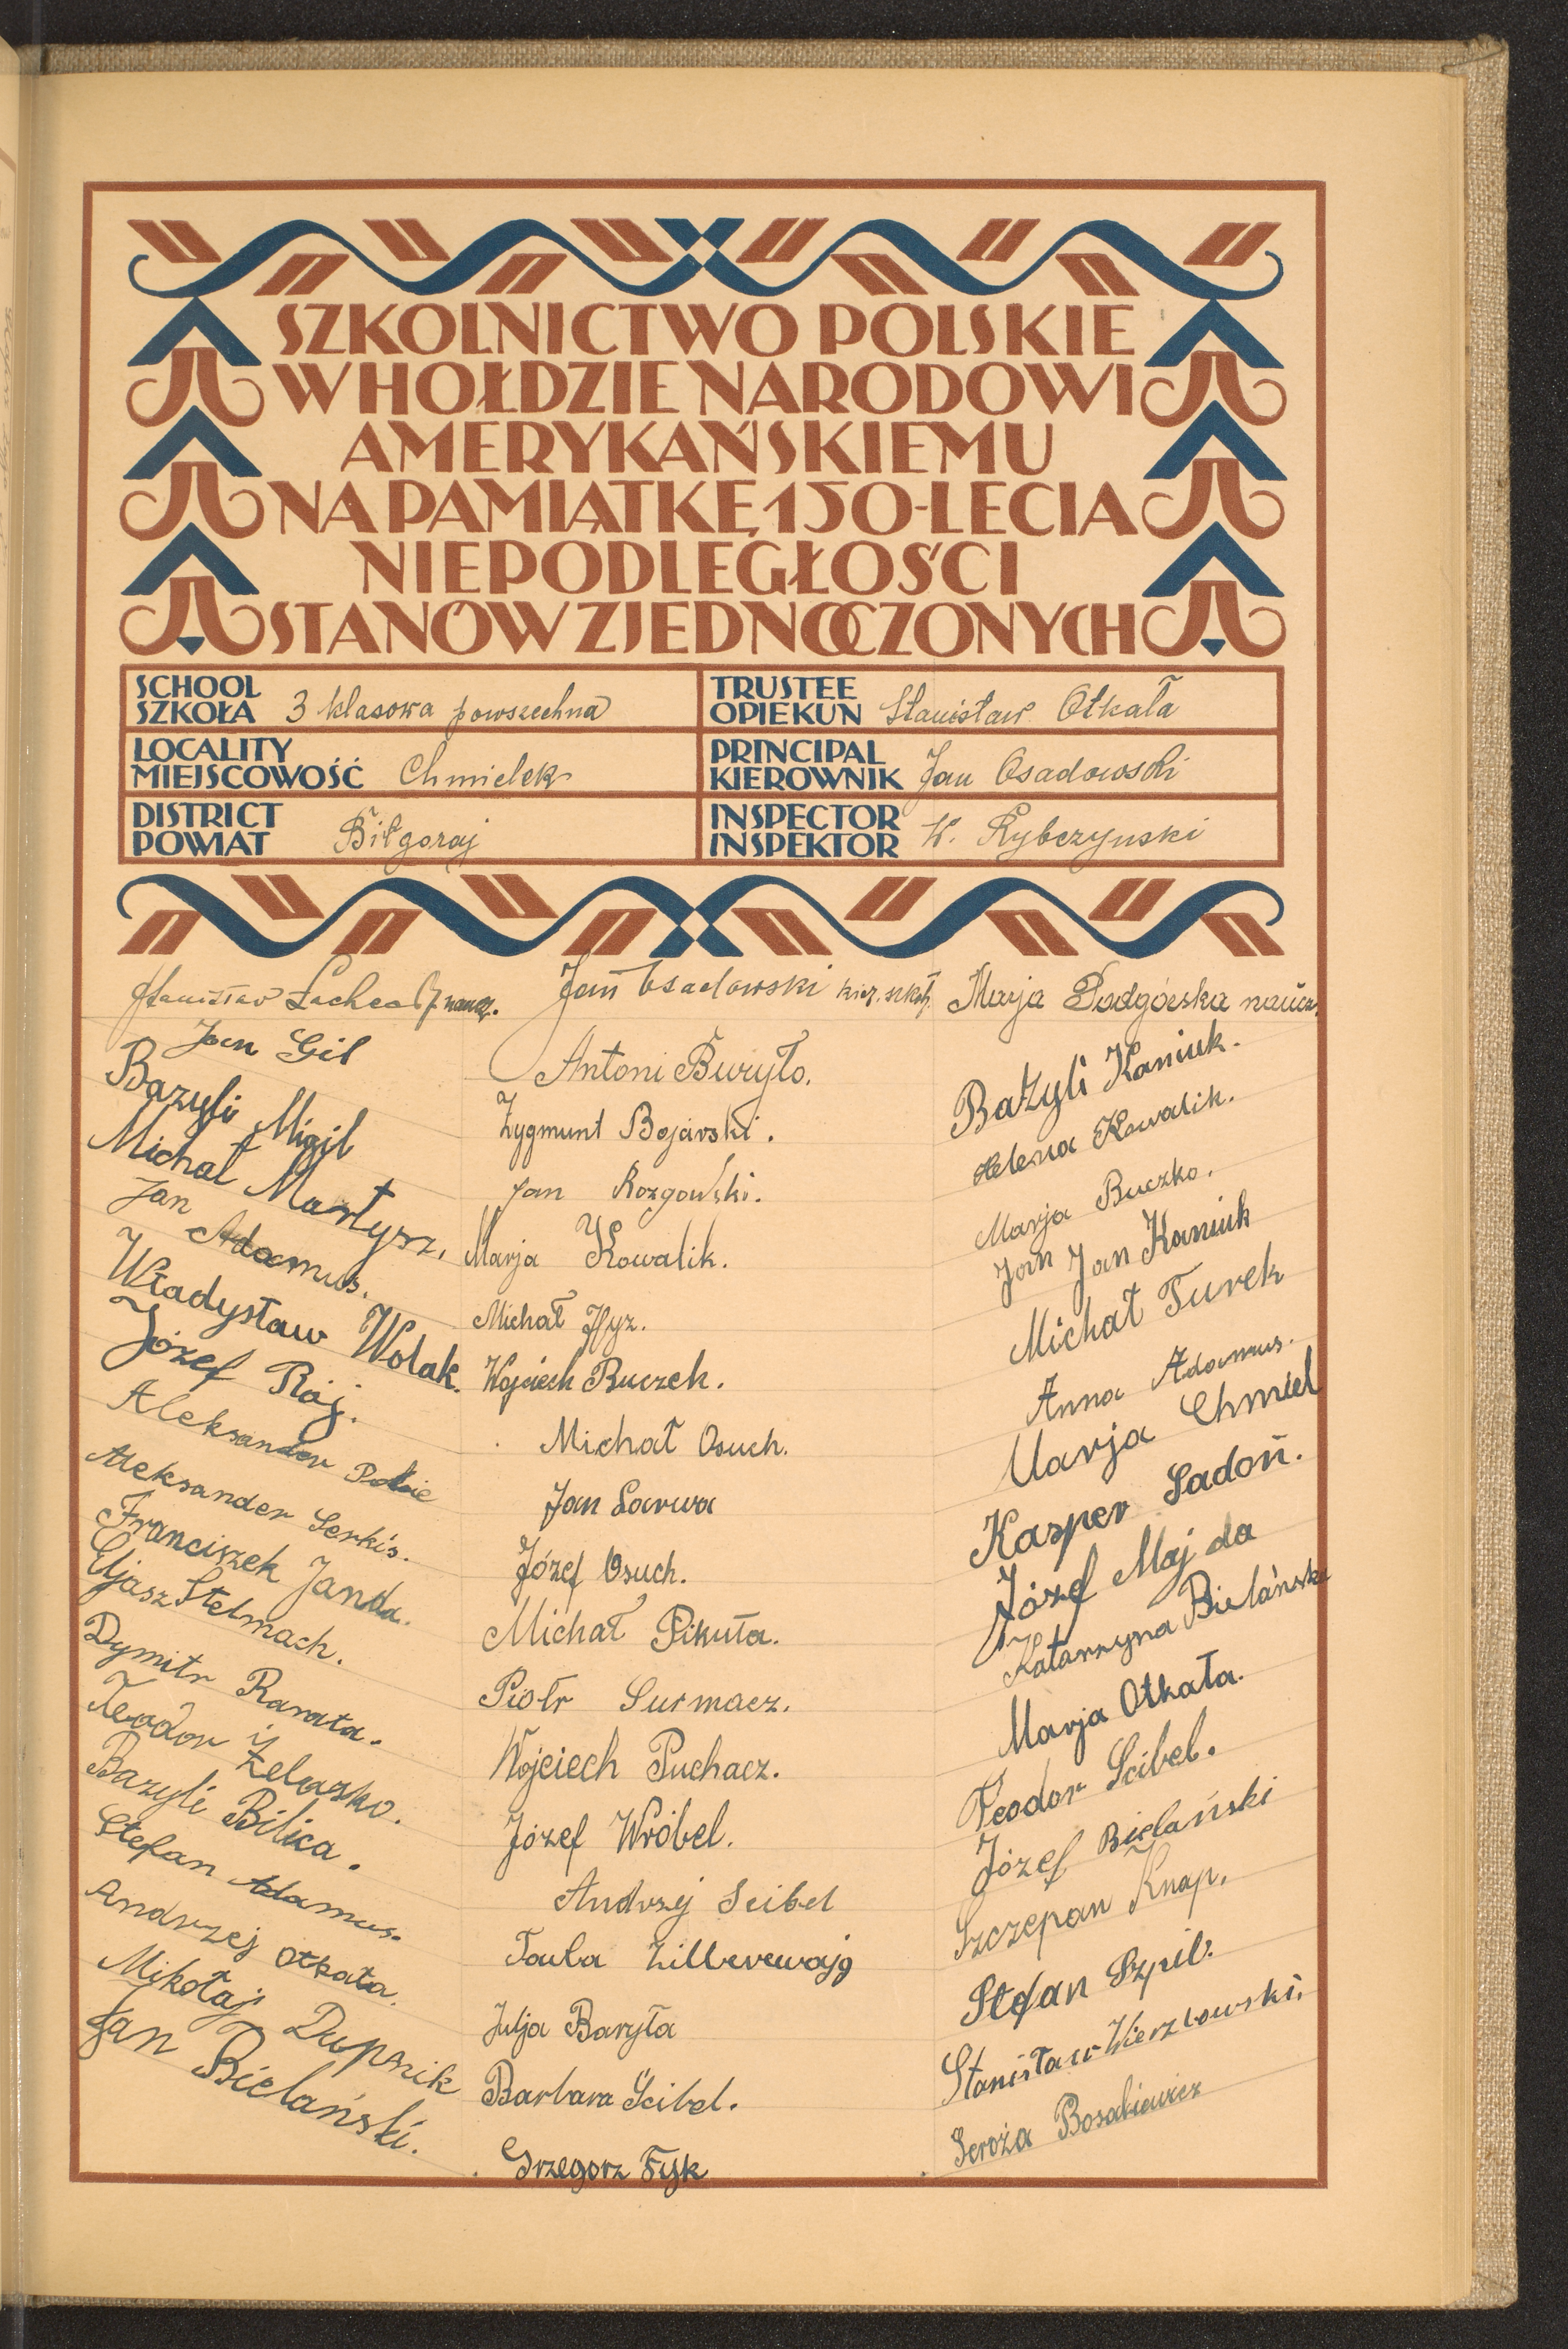 SZKOLNICTWO POLSKIE
W HOŁDZIE NARODOWI
AMERYKAŃSKIEMU
NA PAMIĄTKĘ 150-LECIA
NIEPODLEGŁOŚCI
STANÓW ZJEDNOCZONYCH
SCHOOL
SZKOŁA 3 klasowa powszechna
TRUSTEE
OPIEKUN Stanisław Otkała
LOCALITY
MIEJSCOWOŚĆ Chmielek
PRINCIPAL
KIEROWNIK Jan Osadowski
DISTRICT
POWIAT Biłgoraj
INSPECTOR
INSPEKTOR W. Rybczynski
Stanisław naucz.
Jan Gil
Bazyli Migil
Michał Martysz.
Jan Adamus.
Władysław Wolak.
Józef Rój.
Aleksander
Aleksander Serkis.
Franciszek Janda.
Eljasz Stelmach.
Dymitr Rarata.
Teodor Żelazko.
Bazyli Bilica.
Stefan Adamus.
Andrzej Otkała.
Mikołaj Dupznik
Jan Bielański.
Jan Osadowski kier. szkoły
Antoni Buryło.
Zygmunt Bojarski.
Jan Rozgowski.
Marja Kowalik.
Michał Hyz.
Wojciech Ruczek.
Michał Osuch.
Jan Larwa
Józef Osuch.
Michał Pikuła.
Piotr Surmacz.
Wojciech Puchacz.
Józef Wróbel.
Andrzej Scibel
Tauba Zillberewajg
Julja Baryła
Barbara Ścibel.
Grzegorz Fyk
Marja Podgórska naucz.
Bazyli Kaniuk.
Helena Kowalik.
Marja Buczko.
Jan Jan Kaniuk
Michał Turek
Anna Adamus.
Marja Chmiel
Kasper Sadoń.
Józef Maj da
Katarzyna Bielańska
Marja Otkała.
Teodor Scibel.
Józef Bielański
Szczepan Knap.
Stefan Szpil.
Stanisław Wierzbowski.
Seroża Bosakiewicz